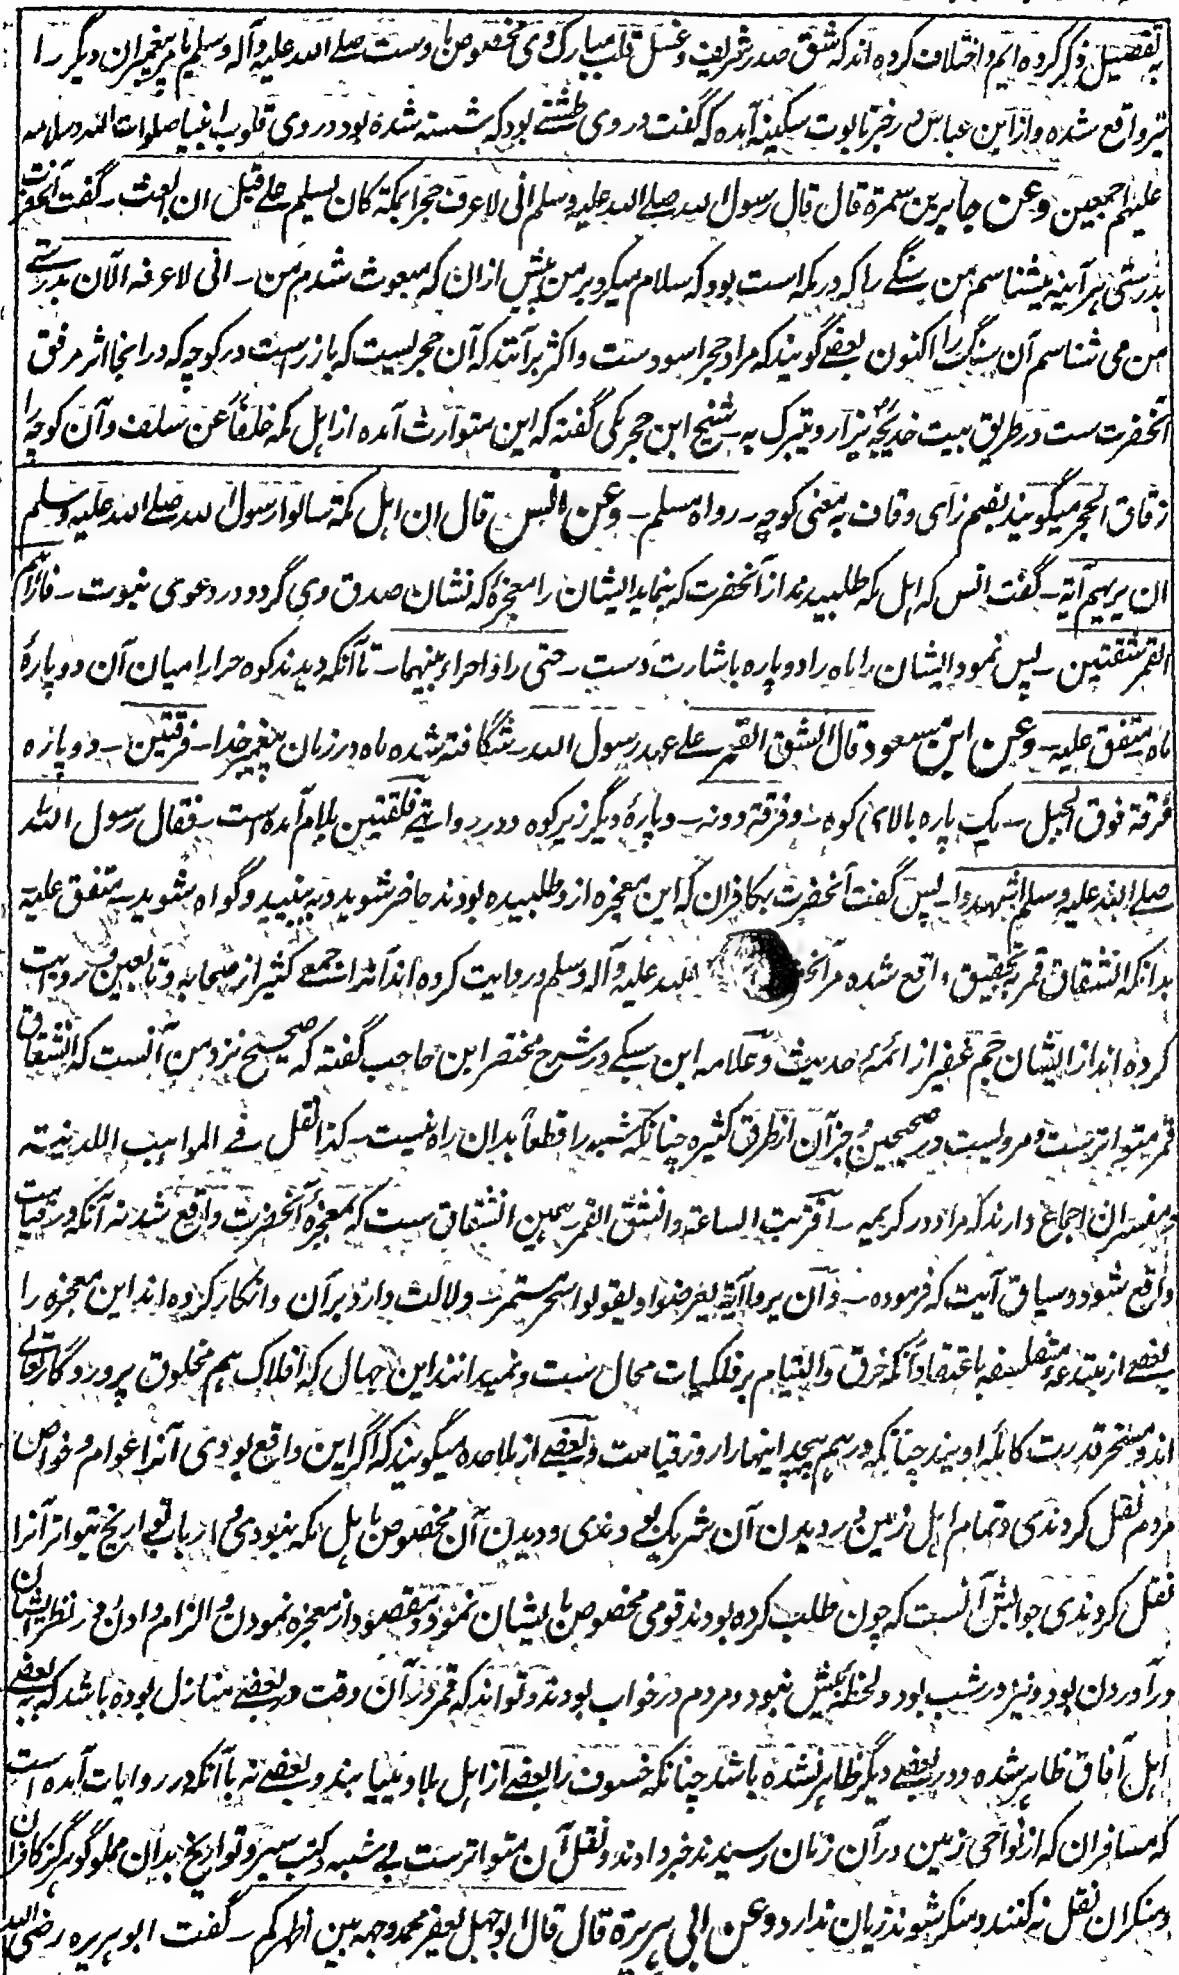 بتفصیل ذکر کرده ایم و اختلاف کرده اند که شق صدر شریف و غسل قلب مبارک وی مخصوص باوست صلے الله علیه وآله وسلم یا مر پیغمبران دیگر را
نیز واقع شده و از ابن عباس در خبر تابوت سکینه آمده که گفت در وی طشتے بود که شسته شده بود در وی قلوب انبیا صلوات الله وسلامه
علیهم اجمعین وعن جابر بن سمرة قال قال رسول الله صلے الله علیه وسلم انی لاعرف حجرا بمکة کان یسلم علے قبل ان ابعث ـ گفت آنحضرت
بدرستی هر آینه میشناسم من سنگے را که در مکه است بود که سلام میکرد بر من پیش ازان که مبعوث شدم من ـ انی لاعرفه الآن بدرستے
من می شناسم آن سنگ را اکنون بعضے گویند که مراد حجر اسود ست و اکثر برآنند که آن حجریست که بارز است در کوچه که در انجا اثر مرفق
آنحضرت ست در طریق بیت خدیجه یزار و یتبرک به ـ شیخ ابن حجر مکی گفته که این متوارث آمده از اهل مکه خلفاً عن سلف و آن کوچه را
زقاق الحجر میگویند بضم زای و قاف به معنی کوچه ـ رواه مسلم ـ وعن انس قال ان اهل مکة سالوا رسول الله صلے الله علیه وسلم
ان یریهم آیة ـ گفت انس که اهل مکه طلبیدند از آنحضرت که بنماید ایشان را معجزۀ که نشان صدق وی گردد در دعوی نبوت ـ فاراهم
القمر شقتین ـ پس نمود ایشان را ماه را دو پاره باشارت دست ـ حتی راوا حراء بینهما ـ تا آنکه دیدند کوه حرا را میان آن دو پارۀ
ماه متفق علیه ـ وعن ابن مسعود قال انشق القمر علے عهد رسول الله ـ شگافته شده ماه در زمان پیغمبر خدا ـ فرقتین ـ دو پاره
فرقة فوق الجبل ـ یک پاره بالای کوه ـ وفرقة دونه ـ و پارۀ دیگر زیر کوه و در روایتے فلقتین بلام آمده است ـ فقال رسول الله
صلے الله علیه وسلم اشهدوا ـ پس گفت آنحضرت بکافران که این معجزه از و طلبیده بودند حاضر شوید و به بینید و گواه شوید ـ متفق علیه
بدانکه انشقاق قمر بتحقیق واقع شده مر آنحضرت الله علیه وآله وسلم و روایت کرده اند آنرا جمعے کثیر از صحابه و تابعین و روایت
کرده اند از ایشان جم غفیر از ائمۀ حدیث و علامه ابن سبکے در شرح مختصر ابن حاجب گفته که صحیح نزد من آنست که انشقاق
قمر متواترست و مرویست در صحیحین و جز آن از طرق کثیره چنانکه شبه را قطعاً بدان راه نیست ـ کذا نقل فے المواهب اللدنیة
و مفسران اجماع دارند که مراد در کریمه ـ اقتربت الساعة وانشق القمر ـ همین انشقاق ست که معجزۀ آنحضرت واقع شد نه آنکه در قیامت
واقع شود و سیاق آیت که فرموده ـ وان یروا آیة یعرضوا ویقولوا سحر مستمر ـ دلالت دارد برآن و انکار کرده اند این معجزه را
بعضے از مبتدعه و متفلسفه باعتقاد آنکه خرق و التیام بر فلکیات محال ست و نمیدانند این جهال که افلاک هم مخلوق پروردگار تعالے
اند و مسخر قدرت کاملۀ اویند چنانکه در هم پیچد اینها را روز قیامت و بعضے از ملاحده میگویند که اگر این واقع بودی آنرا عوام و خواص
مردم نقل کردندی و تمام اهل زمین در دیدن آن شریک بودندی و دیدن آن مخصوص باهل مکه نبودی و ارباب تواریخ بتواتر آنرا
نقل کردندی جوابش آنست که چون طلب کرده بودند قومی مخصوص بایشان نمود و مقصود از معجزه نمودن و الزام دادن در نظر ایشان
درآوردن بود و نیز در شب بود و لحظه بیش نبود و مردم در خواب بودند و تواند که قمر در آن وقت در بعضے منازل بوده باشد که به بعضے
اهل آفاق ظاهر شده و در بعضے دیگر ظاهر نشده باشد چنانکه خسوف را بعضے از اهل بلاد بینند و بعضے نه با آنکه در روایات آمده است
که مسافران که از نواحی زمین در آن زمان رسیدند خبر دادند و نقل آن متواترست بے شبه و کتب سیر و تواریخ بدان مملو گو هرگز کافران
و منکران نقل نه کنند و منکر شوند زیان ندارد وعن ابی هریرة قال قال ابو جهل یعفر محمد وجهه بین اظهرکم ـ گفت ابو هریره رضی الله